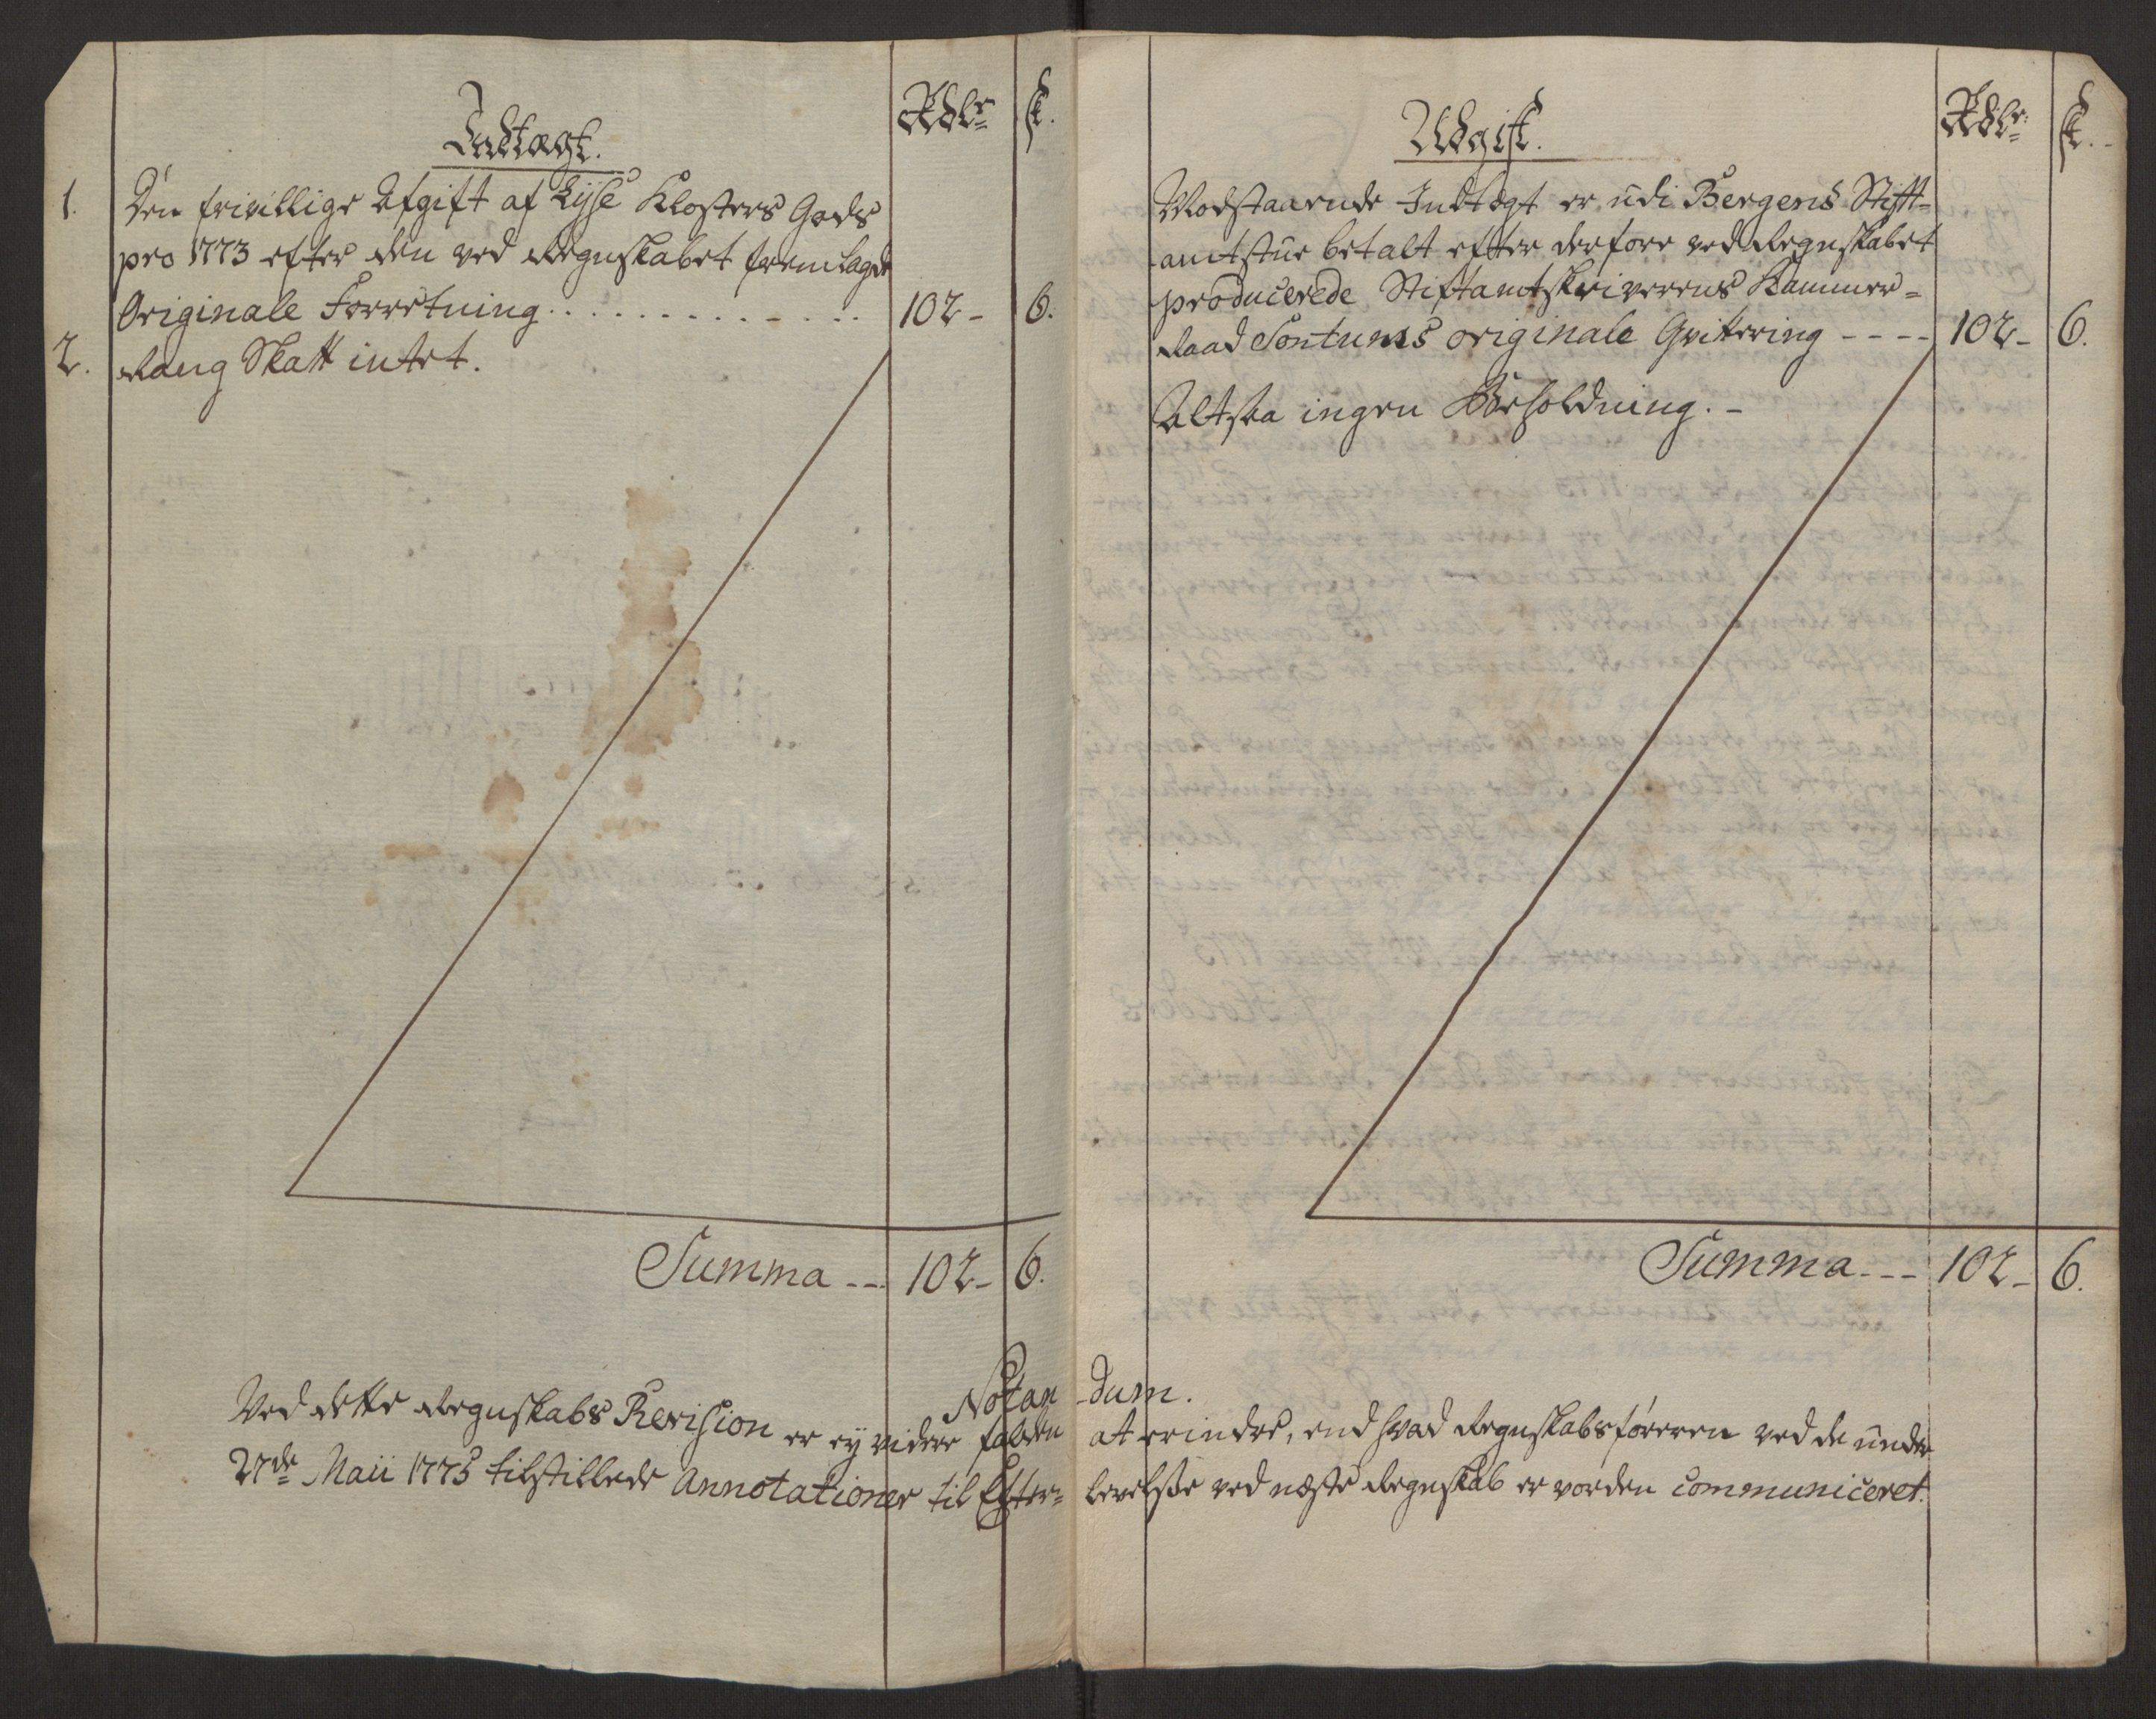 Indtægt.
Rdlr
ſk.
1. Den frivillige Afgift af Lyse Klosters Gods
pro 1773 efter den ved Regnskabet fremlagde
Originale Forretning. . . . . . . . . . . . . 102 - 6.
2. Rang Skatt intet.
Summa --- 102 - 6.
Udgift.
Rdlr:
ſk.
Modstaaende Indtægt er udi Bergens Stift-
amtstue betalt efter derfore ved Regnskabet
producerede Stiftamtskriverens Kammer-
Raad Sontums originale Qvittering ---- 102 - 6.
Altsaa ingen Beholdning. -
Summa --- 102 - 6.
Notan-dum.
Ved dette Regnskabs Revision er ey videre falden at erindre, end hvad Regnskabsføreren ved de under
27de Maii 1775 tilstillede Annotationer til Efter-levelse ved næste Regnskab er vorden communiceret.